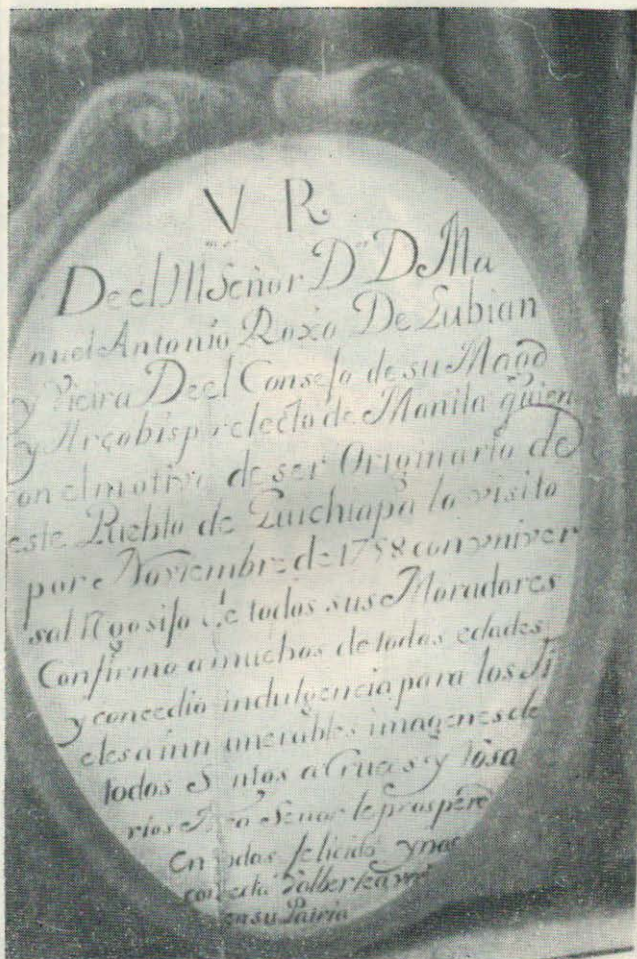 V R
De el Ill mo Señor D n D Ma
nuel Antonio Roxo De Lubian
y Vieira De el Consejo de su Magd
y Arçobispo electo de Manila quien
con el motivo de ser Originario de
este Pueblo de Guichiapa lo visito
por Noviembre de 1758 con vniver
sal Rgosijo de todos sus Moradores
Confirmo a muchos de todas edades
y concedio indulgencia para los Fi
eles a inn umerables imagenes de
todos S ntos a Cruces y Rosa
rios Señor le prospere
En todas felicida y nos
conceda bolber
en su Patria